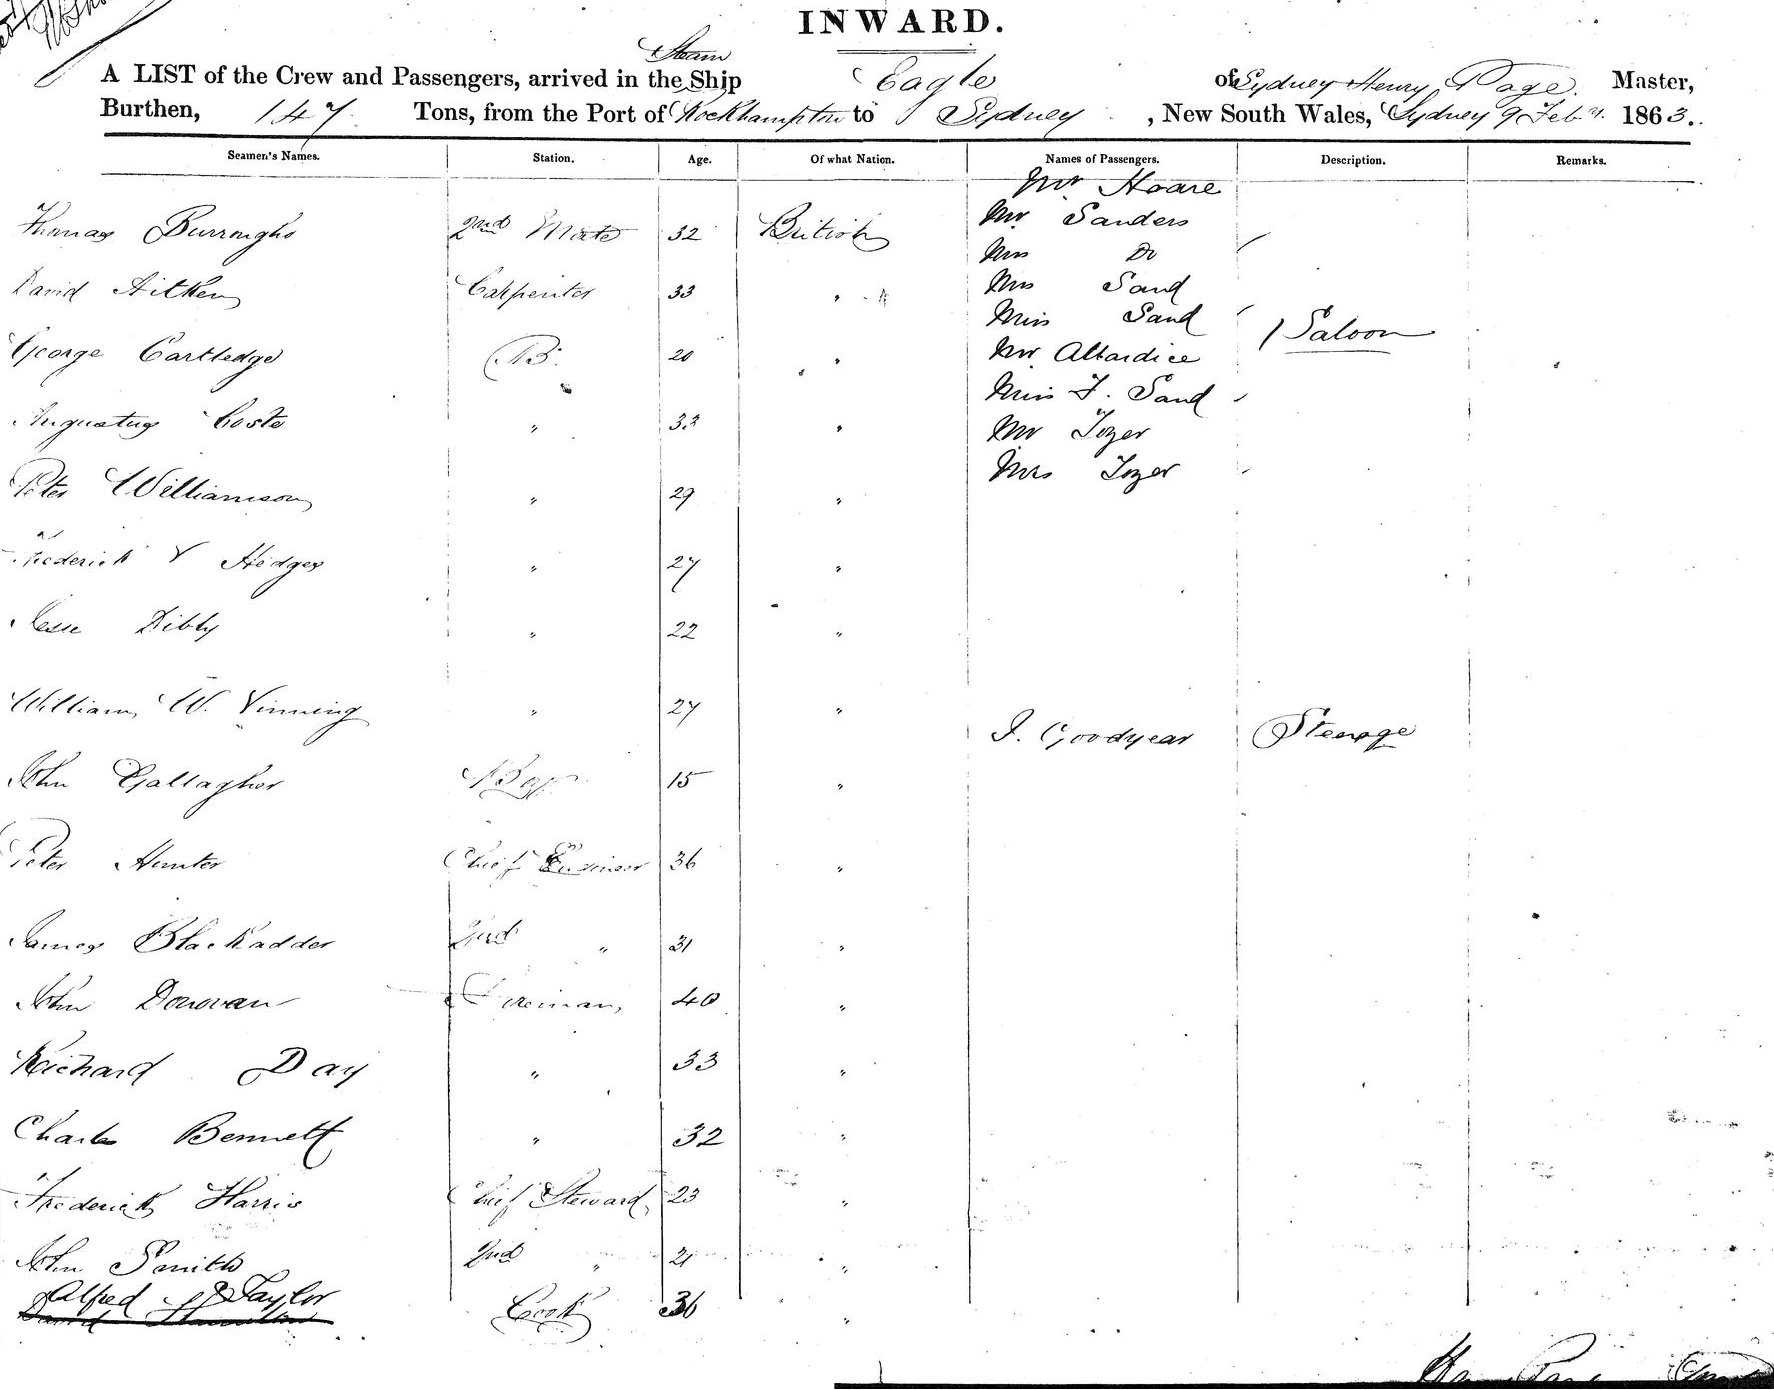 INWARD.
Steam
A LIST of the Crew and Passengers, arrived in the Ship Eagle of Sydney Henry Page. Master,
Burthen, 147 Tons, from the Port of Rockhampton to Sydney, New South Wales, Sydney 9 Feby. 1863.
Seamen's Names. Station. Age. Of what Nation. Names of Passengers. Description. Remarks.
Mr Hoare
Thomas Burroughs 2nd Mate 32 British Mr. Sanders
Mrs Do
David Aitken Carpenter 33 " Mrs Sand
Miss Sand Saloon
George Cartledge AB. 20 " Mr. Allardice
Miss F. Sand
Augustus Coste " 33 " Mr Tozer
Mrs Tozer
Peter Williamson " 29 "
Frederick V Hodges " 27 "
Jesse Dibly " 22 "
William W. Vinning " 27 "
J. Goodyear Steerage
John Gallagher Boy 15 "
Peter Hunter Chief Engineer 36 "
James Blackadder 2nd " 31 "
John Donovan Fireman 40 "
Richard Day " 33 "
Charles Bennett " 32 "
Frederick Harris Chief Steward 23 "
John Smith 2nd " 21 "
Alfred Taylor Cook 36 "
David